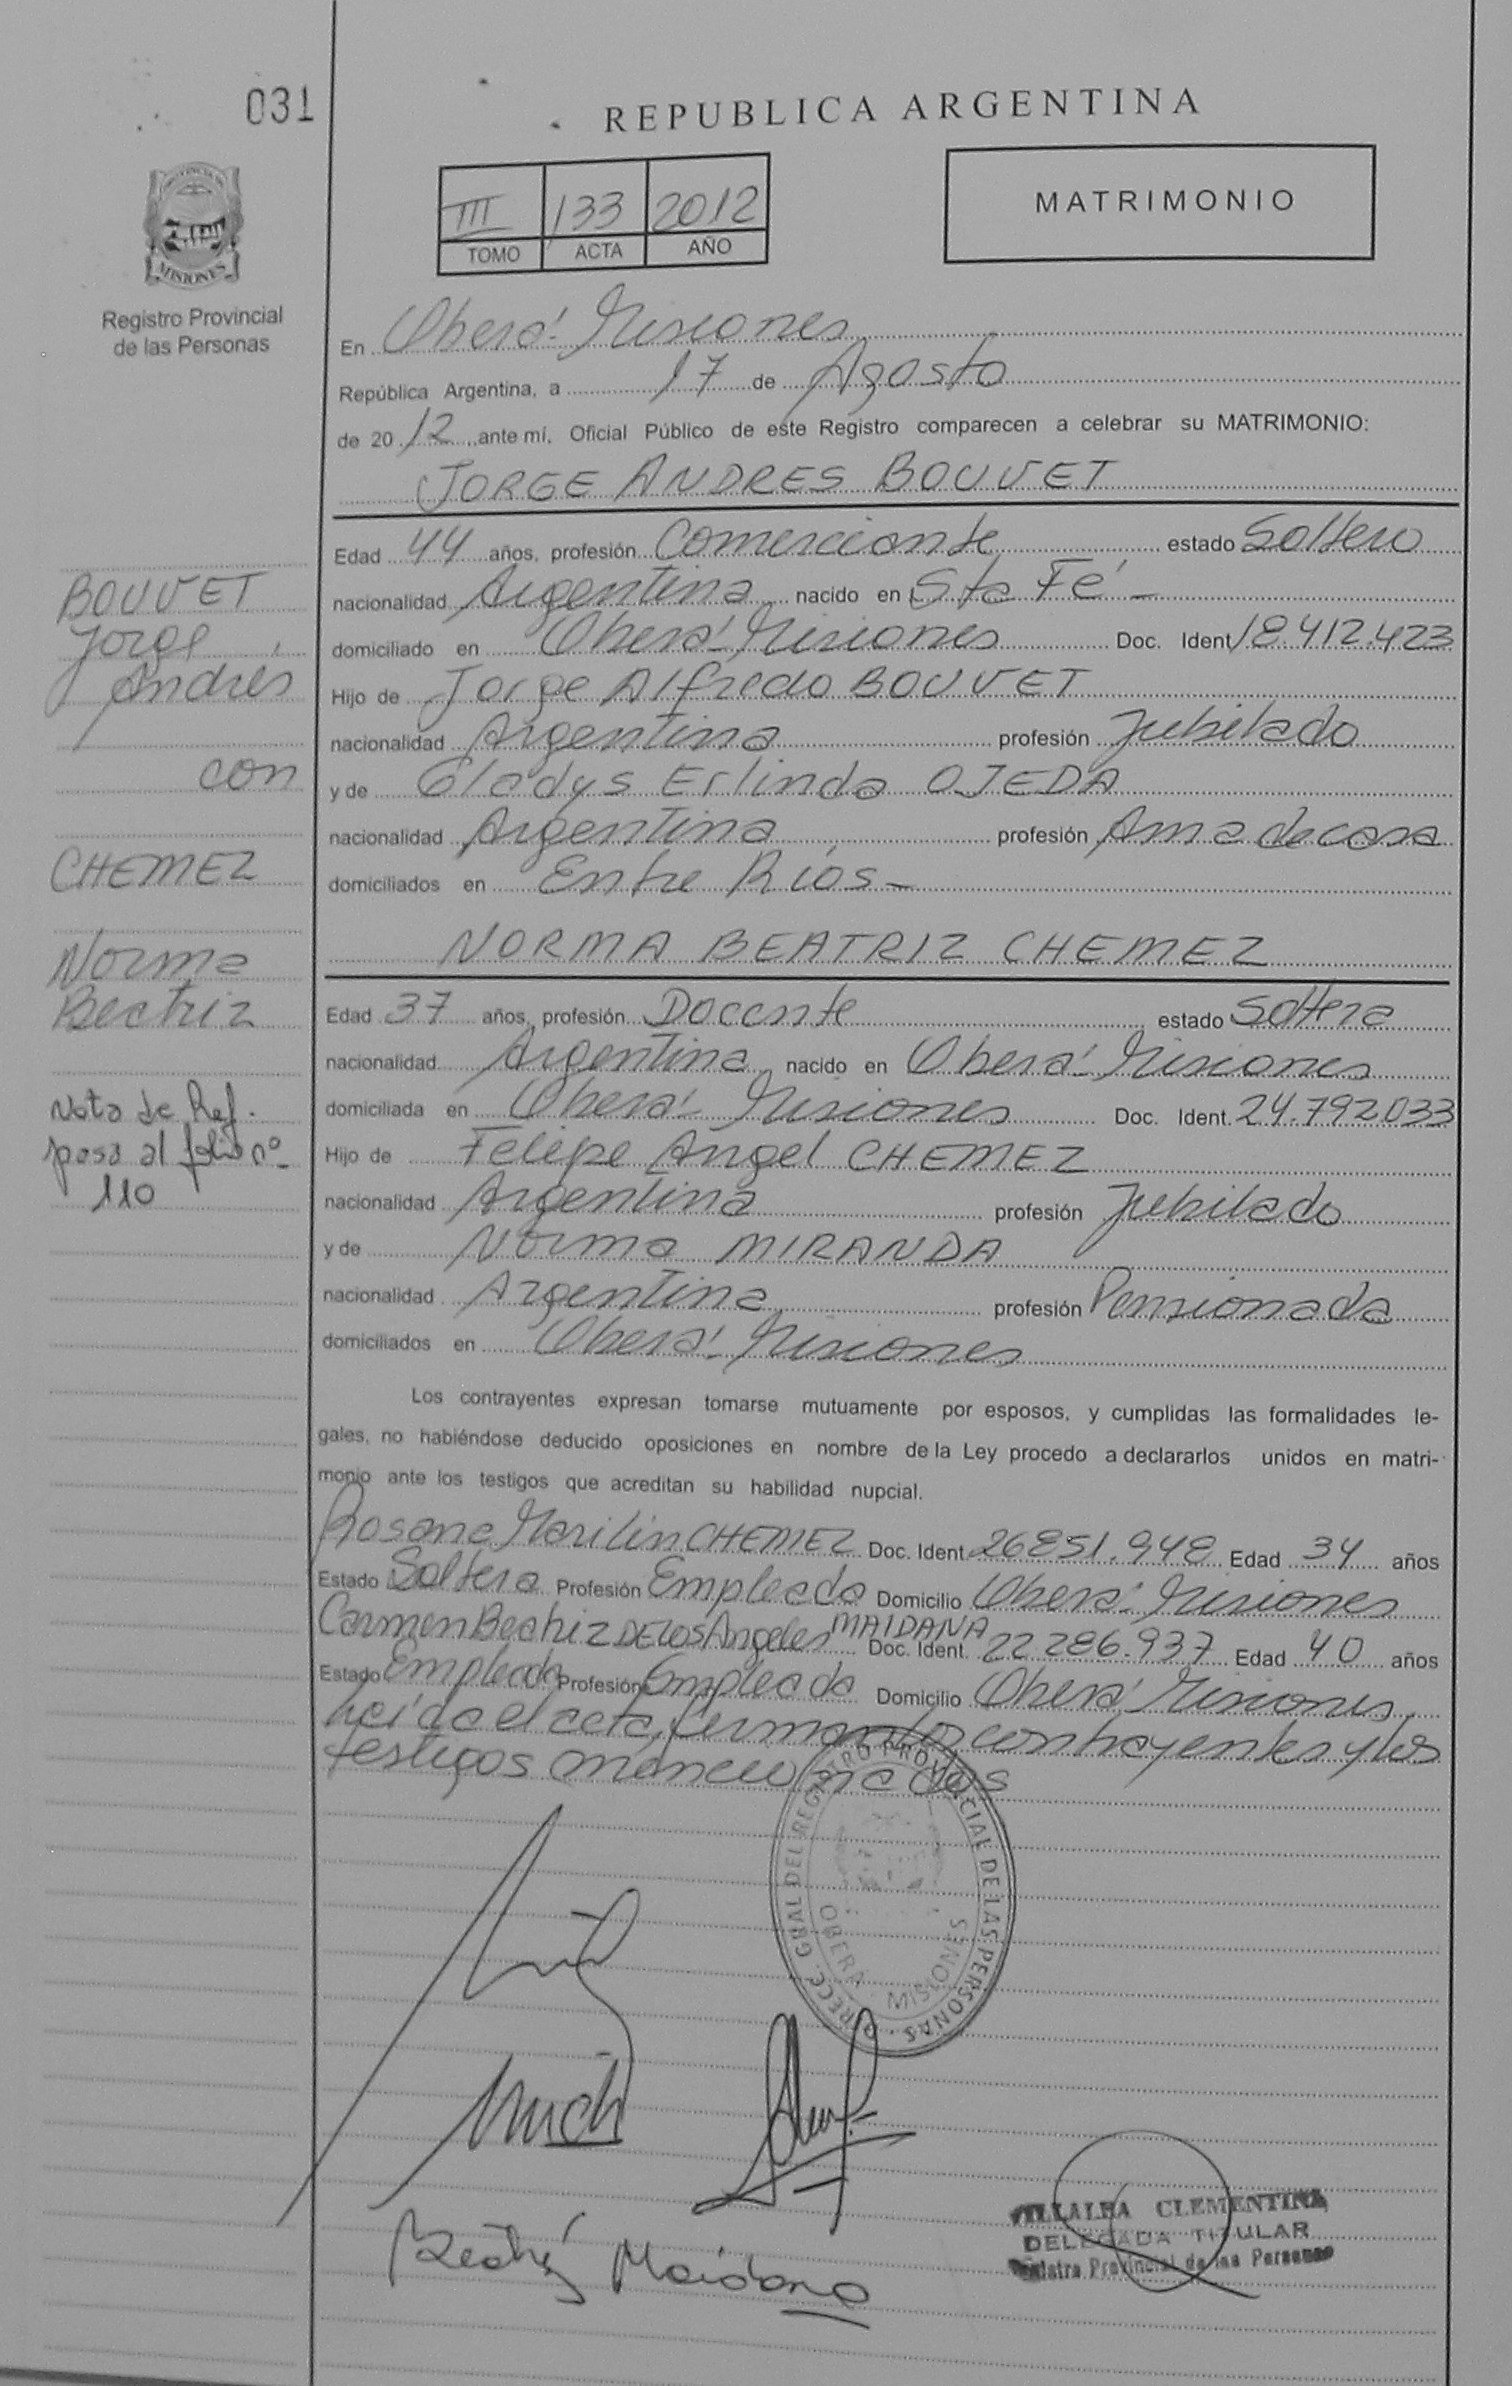 031
REPUBLICA ARGENTINA
III 133 2012
TOMO ACTA AÑO
MATRIMONIO
MISIONES
Registro Provincial
de las Personas
En Oberá - Misiones
República Argentina, a 17 de Agosto
de 2012 ante mí, Oficial Público de este Registro comparecen a celebrar su MATRIMONIO:
JORGE ANDRES BOUVET
Edad 44 años, profesión Comerciante estado Soltero
nacionalidad Argentina nacido en Sta Fé -
domiciliado en Oberá - Misiones Doc. Ident 18.412.423
Hijo de Jorge Alfredo BOUVET
nacionalidad Argentina profesión Jubilado
y de Gladys Erlinda OJEDA
nacionalidad Argentina profesión Ama de casa
domiciliados en Entre Ríos -
NORMA BEATRIZ CHEMEZ
Edad 37 años, profesión Docente estado Soltera
nacionalidad Argentina nacido en Oberá - Misiones
domiciliada en Oberá - Misiones Doc. Ident. 24.792.033
Hijo de Felipe Angel CHEMEZ
nacionalidad Argentina profesión Jubilado
y de Norma MIRANDA
nacionalidad Argentina profesión Pensionada
domiciliados en Oberá - Misiones
BOUVET
Jorge
Andrés
con
CHEMEZ
Norma
Beatriz
Nota de Ref.
pasa al folio nº
110
Los contrayentes expresan tomarse mutuamente por esposos, y cumplidas las formalidades le-
gales, no habiéndose deducido oposiciones en nombre de la Ley procedo a declararlos unidos en matri-
monio ante los testigos que acreditan su habilidad nupcial.
Rosana Marilin CHEMEZ Doc. Ident. 26851.948 Edad 34 años
Estado Soltera Profesión Empleada Domicilio Oberá - Misiones
Carmen Beatriz DE LOS Angeles MAIDANA Doc. Ident. 22 286.937 Edad 40 años
Estado Empleada Profesión Empleada Domicilio Oberá Misiones
Leída el acta, firman los contrayentes y los
testigos mencionados
DIRECC. GRAL DEL REGISTRO PROVINCIAL DE LAS PERSONAS
OBERA MISIONES
Beatriz Maidana
VILLALBA CLEMENTINA
DELEGADA TITULAR
Registro Provincial de las Personas